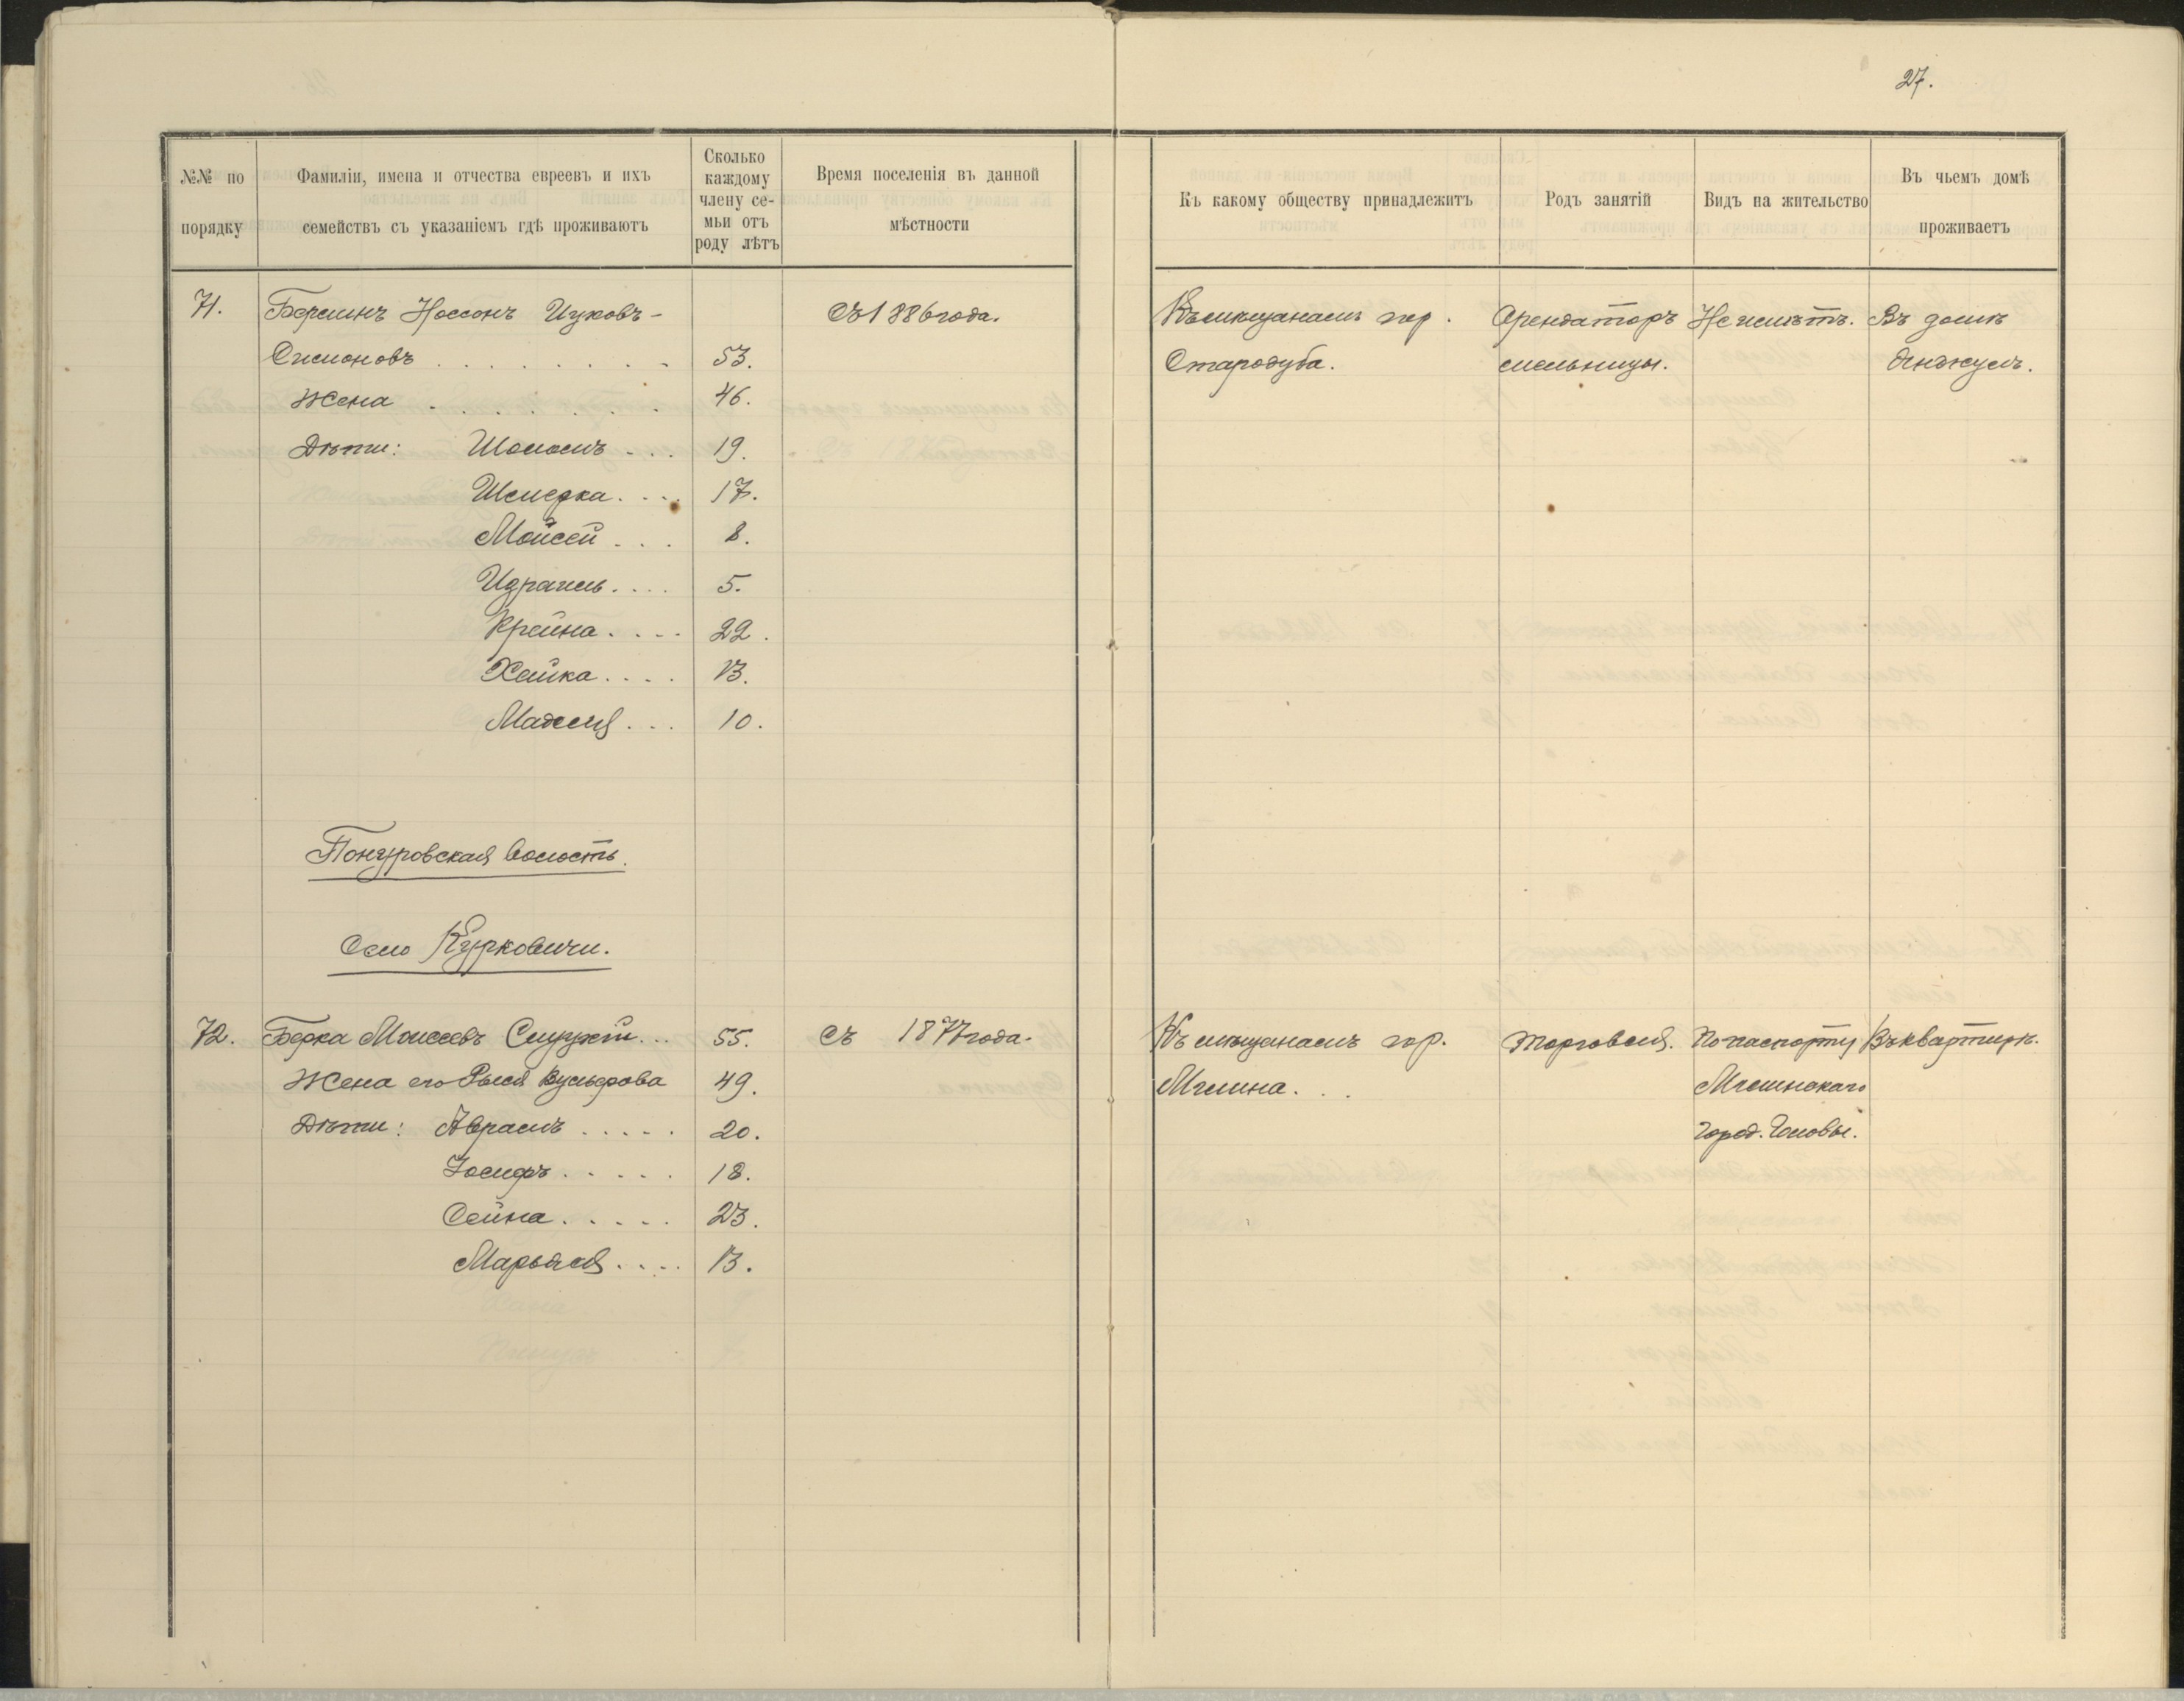 27.
№№ по
порядку
Фамиліи, имена и отчества евреевъ и ихъ
семействъ съ указаніемъ гдѣ проживаютъ
Сколько
каждому
члену се-
мьи отъ
роду лѣтъ
Время поселенія въ данной
мѣстности
Къ какому обществу принадлежитъ
Родъ занятій
Видъ на жительство
Въ чьемъ домѣ
проживаетъ
71. Берлинъ Носсонъ Ицковъ- Съ 1886 года. Къ мѣщанамъ гор. Арендаторъ Не имѣтъ. Въ домѣ
Симоновъ 53. Стародуба. мельницы.
Жена 46.
Дѣти: Шоломъ 19.
Шмерка 17.
Мойсей 8.
Израиль 5.
Крейна 22.
Хайка 13.
10.
Понуровская Волость.
Село Курковичи.
72. Берка Моисеевъ Слуцкій 55. Съ 1877 года. Къ мѣщанамъ гор. Торговля. По паспорту Въ квартирѣ.
Жена его Рыся Вульфова 49. Мглина. Мглинскаго
Дѣти: Абрамъ 20. Город. Головы.
Іосифъ 18.
Сейна 23.
Марьяся 13.